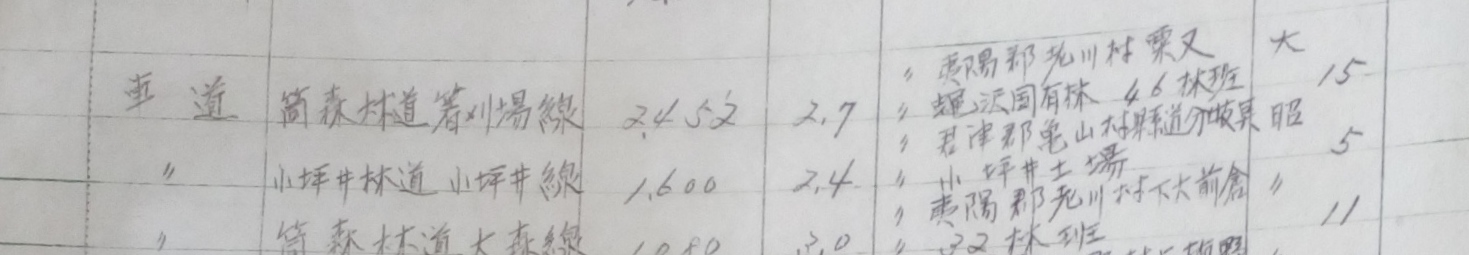 〃 夷隅郡老川村粟又 大
車道 筒森林道箸刈場線 2,452 2.7 〃 沢国有林 46林班 15
〃 君津郡亀山村縣道分岐点 昭
〃 小坪井林道 小坪井線 1,600 2.4 〃 小坪井土場 5
〃 夷隅郡老川村大前倉 〃
〃 筒森林道大森線 1,080 3.0 〃 32林班 11